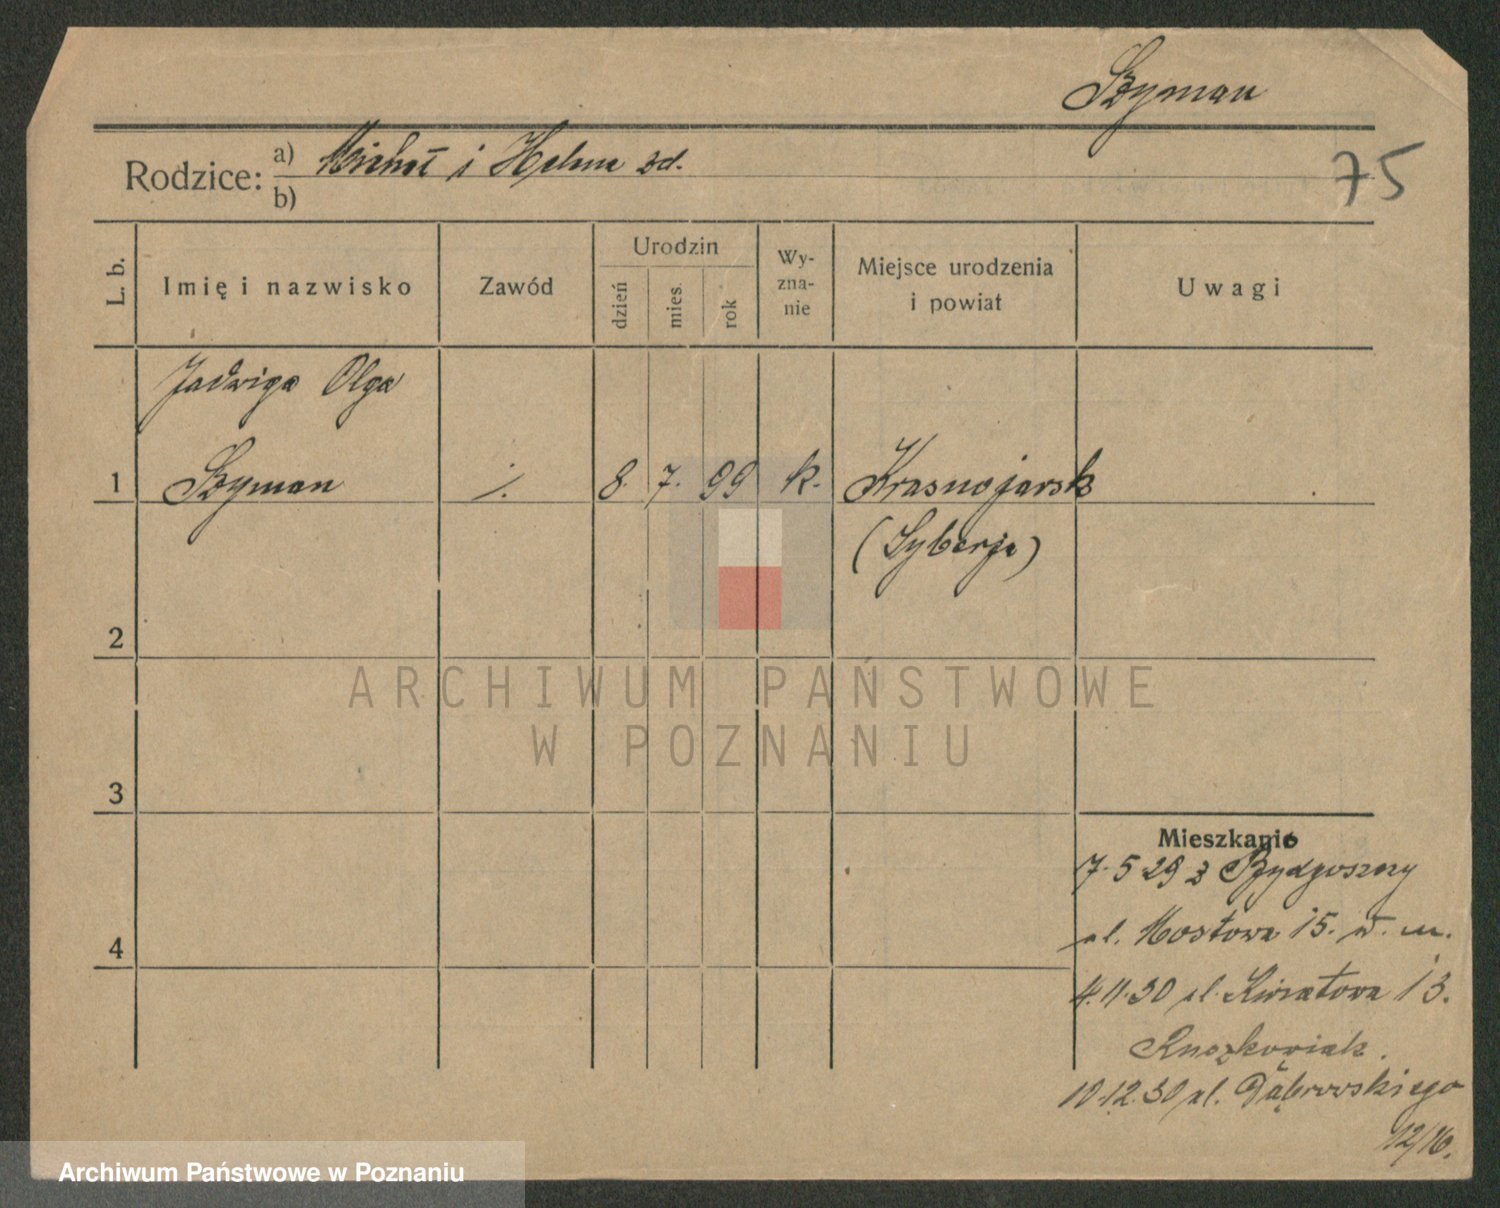 Szyman
Rodzice: a) Michał i Helena zd.
b)
75
L. b. Imię i nazwisko Zawód Urodzin dzień mies. rok Wyznanie Miejsce urodzenia i powiat Uwagi
Jadwiga Olga
1 Szyman ./. 8. 7. 99 k. Krasnojarsk
(Syberja)
2
ARCHIWUM PAŃSTWOWE
W POZNANIU
3
Mieszkanie
7.5 29 z Bydgoszczy
ul. Mostowa 15. w. m.
4
4.11.30 ul. Kwiatowa 13.
10.12.30 ul. Dąbrowskiego
12/16.
Archiwum Państwowe w Poznaniu